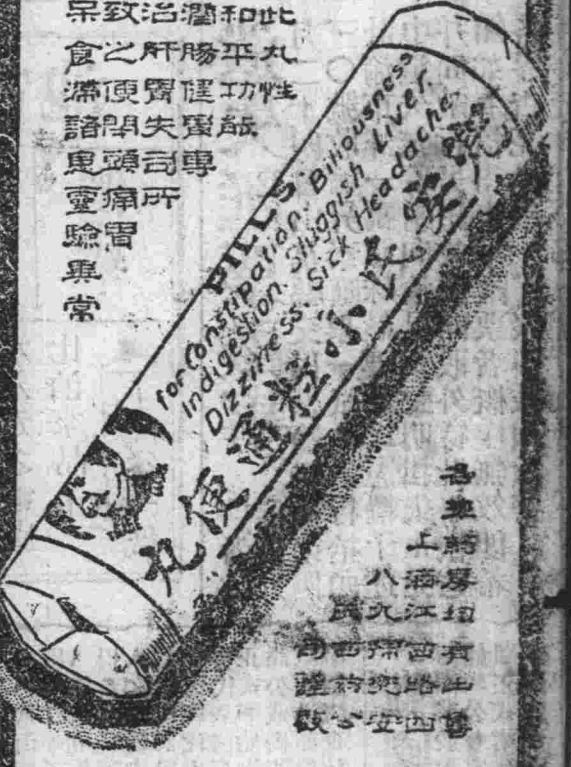 此丸性
和平功能
潤腸健胃專
治肝胃失司所
致之便閉頭痛胃
呆食滯諸患靈驗異常
PILLS.
for Constipation, Biliousness
Indigestion, Sluggish Liver,
Dizziness, Sick Headache,
兜安氏小粒通便丸
各埠葯房均有出售
上海江西路四
八九號兜安
氏西葯公
司謹啟